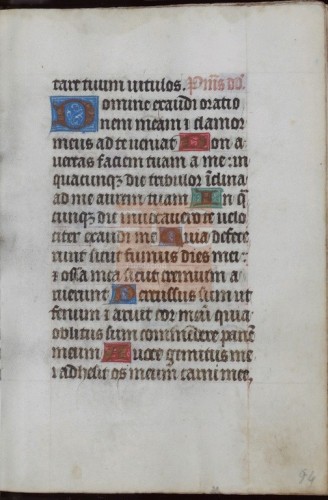 tare tuum vitulos. Ps̄ms dd.
Domine exaudi oratio
nem meam ⁊ clamor
meus ad te veniat Non a
vertas faciem tuam a me: in
quacunq̄ die tribulor īclina
ad me aurem tuam In q̄
cunq̄ die invocavero te velo
citer exaudi me Quia defece
runt sicut fumus dies mei:
⁊ ossa mea sicut cremium a
ruerunt Percussus sum ut
fenum ⁊ aruit cor meū quia
oblitus sum comedere panē
meum A voce gemitus me
i adhesit os meum carni mee,
94